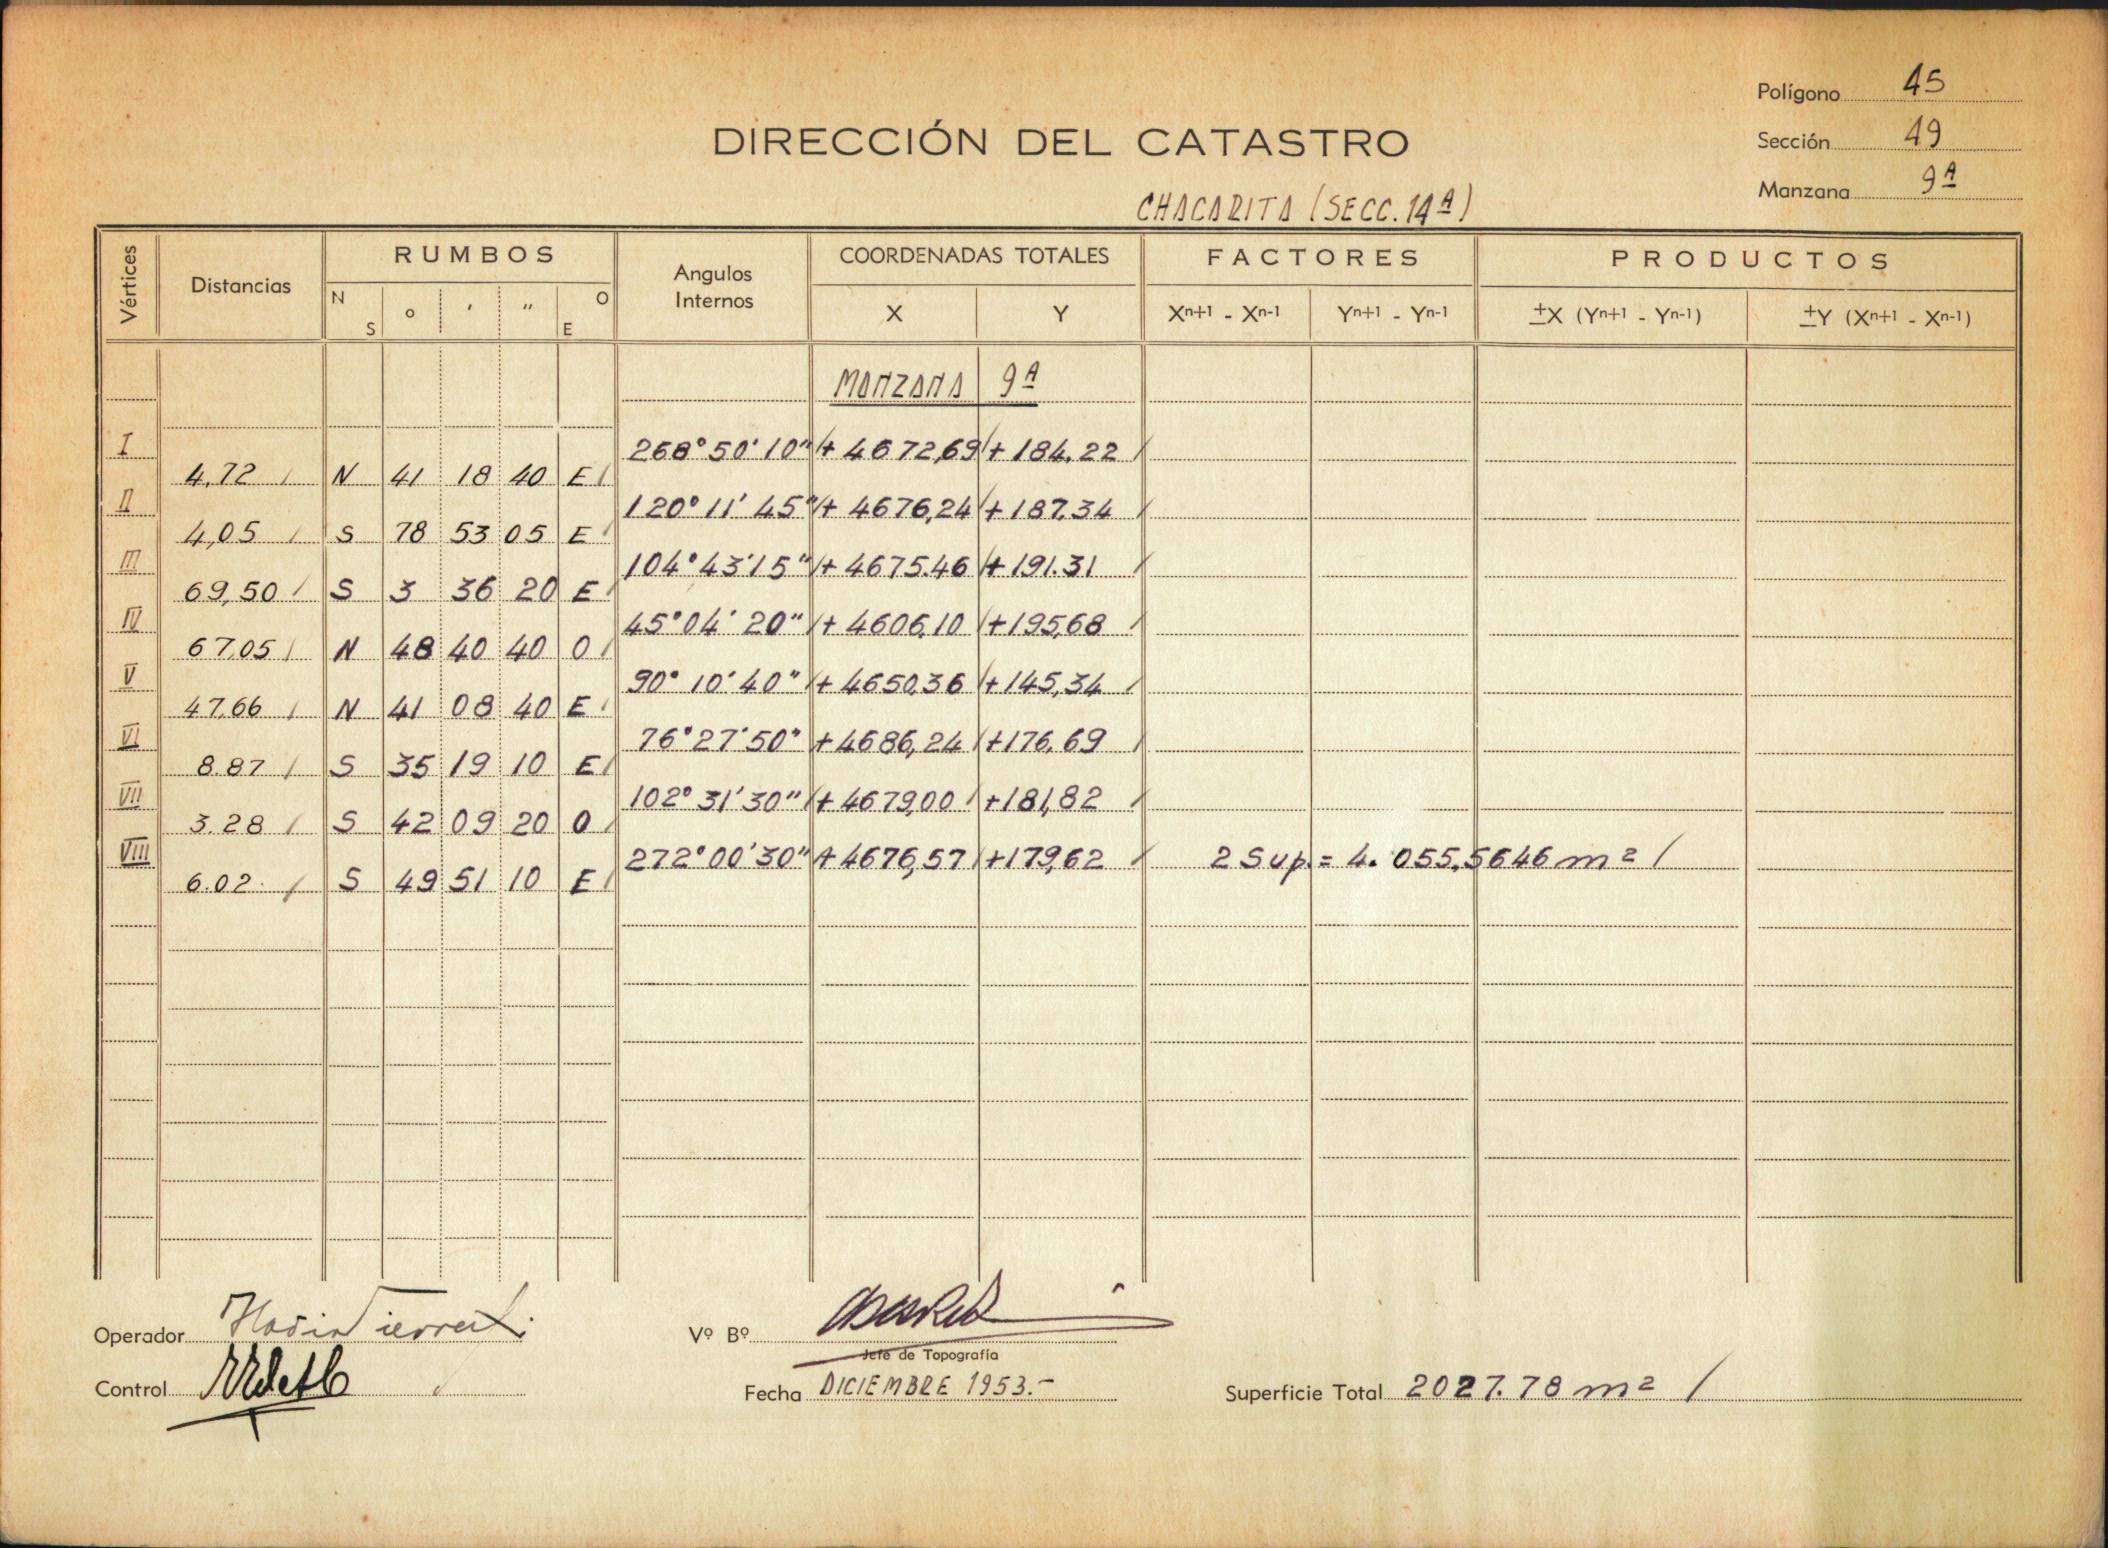 Polígono 45
DIRECCIÓN DEL CATASTRO
Sección 49
Manzana 9ª
CHACARITA (SECC. 14ª)
Vértices Distancias RUMBOS Angulos Internos COORDENADAS TOTALES FACTORES PRODUCTOS
N S ° ' " O E X Y Xn+1 - Xn-1 Yn+1 - Yn-1 ±X (Yn+1 - Yn-1) ±Y (Xn+1 - Xn-1)
MANZANA 9ª
I 268°50'10" + 4672,69 + 184.22
4,72 N 41 18 40 E
II 120°11'45" + 4676,24 + 187.34
4,05 S 78 53 05 E
III 104°43'15" + 4675.46 + 191.31
69,50 S 3 36 20 E
IV 45°04'20" + 4606,10 + 195,68
67,05 N 48 40 40 O
V 90°10'40" + 4650,36 + 145,34
47,66 N 41 08 40 E
VI 76°27'50" + 4686,24 + 176,69
8.87 S 35 19 10 E
VII 102°31'30" + 4679,00 + 181,82
3.28 S 42 09 20 O
VIII 272°00'30" + 4676,57 + 179,62 2 Sup. = 4.055,5646 m²
6.02 S 49 51 10 E
Operador Vº Bº
Jefe de Topografía
Control Fecha DICIEMBRE 1953.- Superficie Total 2027.78 m²